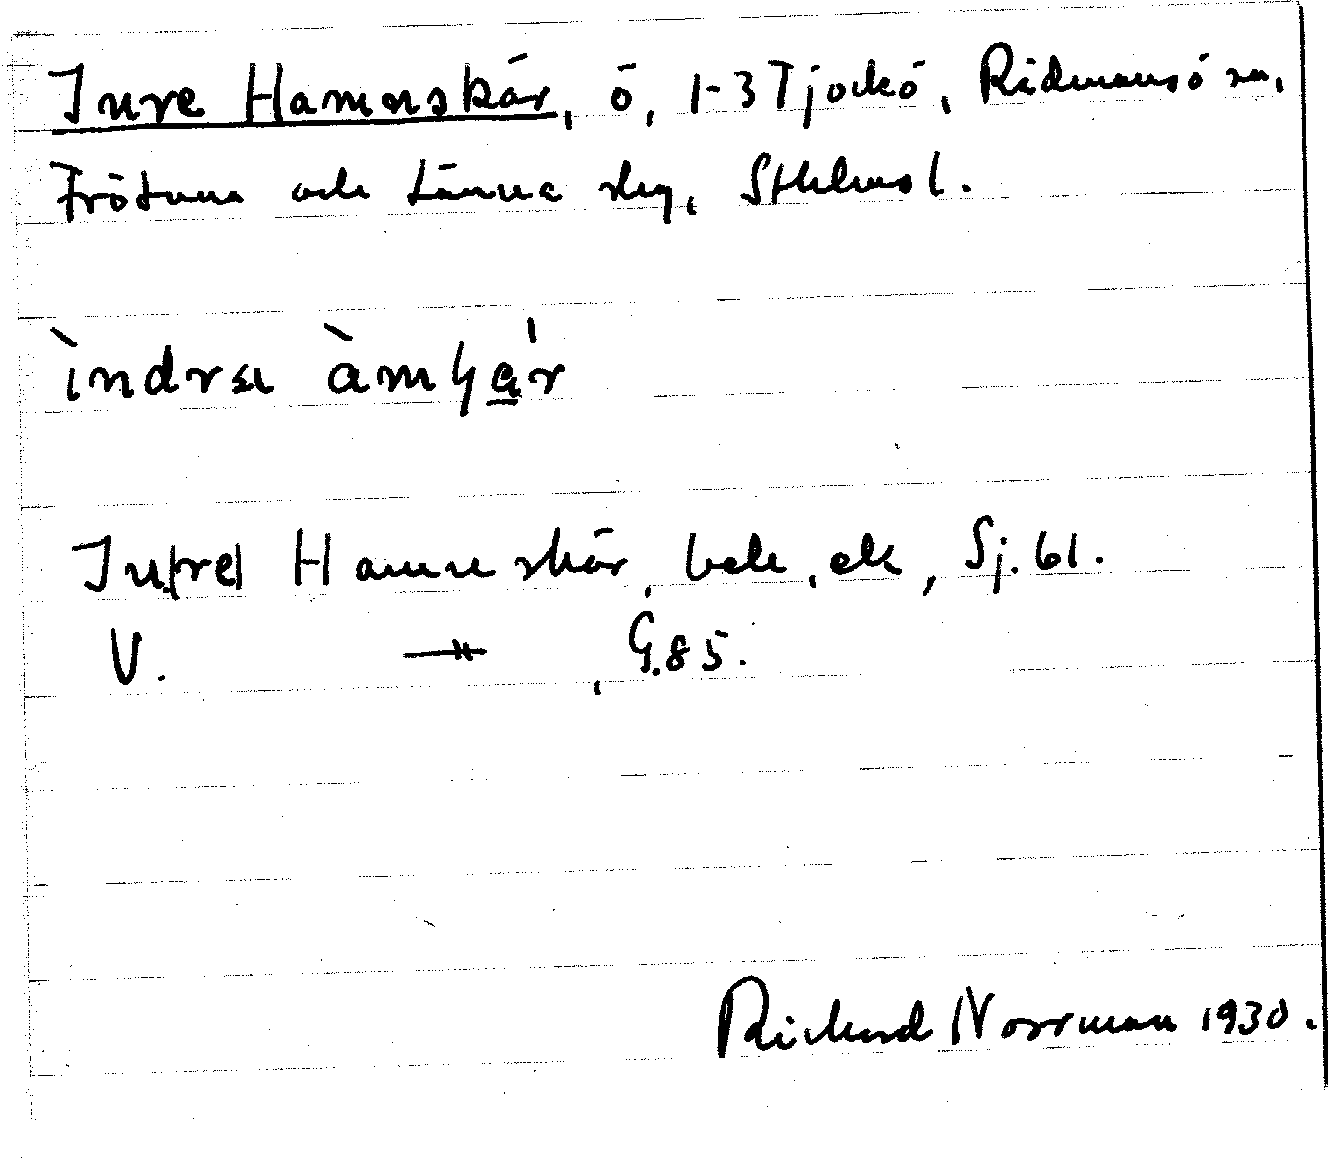 Inre Hamnskär, ö, 1-3 Tjockö, Rådmansö sn,
Frötuna och Länna skg, Sthlms l.
ìndra àmɧa̲'r
In[re] Hamnskär, bebl., ek, Sj. 61.
V. —〃— , G. 85.
Richard Norrman 1930.